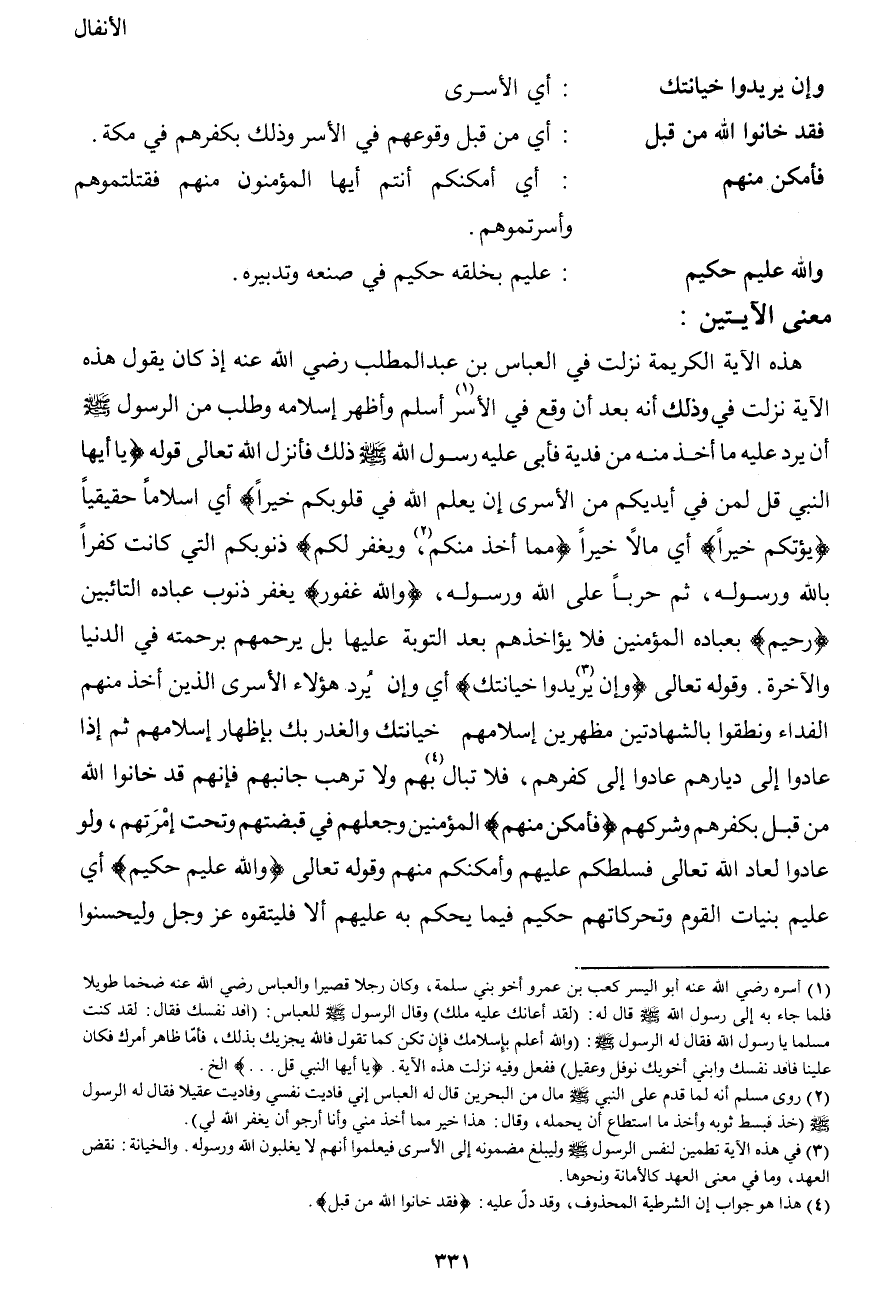 الأنفال
وإن يريدوا خيانتك : أي الأسرى
فقد خانوا الله من قبل : أي من قبل وقوعهم في الأسر وذلك بكفرهم في مكة .
فأمكن منهم : أي أمكنكم أنتم أيها المؤمنون منهم فقتلتموهم
وأسرتموهم .
والله عليم حكيم : عليم بخلقه حكيم في صنعه وتدبيره .
معنى الآيـتين :
هذه الآية الكريمة نزلت في العباس بن عبدالمطلب رضي الله عنه إذ كان يقول هذه
الآية نزلت في وذلك أنه بعد أن وقع في الأسر(١) أسلم وأظهر إسلامه وطلب من الرسول ﷺ
أن يرد عليه ما أخذ منه من فدية فأبى عليه رسول الله ﷺ ذلك فأنزل الله تعالى قوله ﴿يا أيها
النبي قل لمن في أيديكم من الأسرى إن يعلم الله في قلوبكم خيراً﴾ أي اسلاماً حقيقياً
﴿يؤتكم خيراً﴾ أي مالًا خيراً ﴿مما أخذ منكم(٢)، ويغفر لكم﴾ ذنوبكم التي كانت كفراً
بالله ورسوله، ثم حرباً على الله ورسوله، ﴿والله غفور﴾ يغفر ذنوب عباده التائبين
﴿رحيم﴾ بعباده المؤمنين فلا يؤاخذهم بعد التوبة عليها بل يرحمهم برحمته في الدنيا
والآخرة . وقوله تعالى ﴿وإن يريدوا(٣) خيانتك﴾ أي وإن يُرد هؤلاء الأسرى الذين أخذ منهم
الفداء ونطقوا بالشهادتين مظهرين إسلامهم خيانتك والغدر بك بإظهار إسلامهم ثم إذا
عادوا إلى ديارهم عادوا إلى كفرهم، فلا تبال بهم(٤) ولا ترهب جانبهم فإنهم قد خانوا الله
من قبل بكفرهم وشركهم ﴿فأمكن منهم﴾ المؤمنين وجعلهم في قبضتهم وتحت إمْرَتِهم، ولو
عادوا لعاد الله تعالى فسلطكم عليهم وأمكنكم منهم وقوله تعالى ﴿والله عليم حكيم﴾ أي
عليم بنيات القوم وتحركاتهم حكيم فيما يحكم به عليهم ألا فليتقوه عز وجل وليحسنوا
(١) أسره رضي الله عنه أبو اليسر كعب بن عمرو أخو بني سلمة، وكان رجلا قصيرا والعباس رضي الله عنه ضخما طويلا
فلما جاء به إلى رسول الله ﷺ قال له : (لقد أعانك عليه ملك) وقال الرسول ﷺ للعباس : (افد نفسك فقال : لقد كنت
مسلما يا رسول الله فقال له الرسول ﷺ : (والله أعلم بإسلامك فإن تكن كما تقول فالله يجزيك بذلك، فأمّا ظاهر أمرك فكان
علينا فافد نفسك وابني أخويك نوفل وعقيل) ففعل وفيه نزلت هذه الآية . ﴿يا أيها النبي قل . . . ﴾ الخ .
(٢) روى مسلم أنه لما قدم على النبي ﷺ مال من البحرين قال له العباس إني فاديت نفسي وفاديت عقيلا فقال له الرسول
ﷺ (خذ فبسط ثوبه وأخذ ما استطاع أن يحمله، وقال : هذا خير مما أخذ مني وأنا أرجو أن يغفر الله لي) .
(٣) في هذه الآية تطمين لنفس الرسول ﷺ وليبلغ مضمونه إلى الأسرى فيعلموا أنهم لا يغلبون الله ورسوله . والخيانة : نقض
العهد، وما في معنى العهد كالأمانة ونحوها .
(٤) هذا هو جواب إن الشرطية المحذوف، وقد دلّ عليه : ﴿فقد خانوا الله من قبل﴾ .
٣٣١